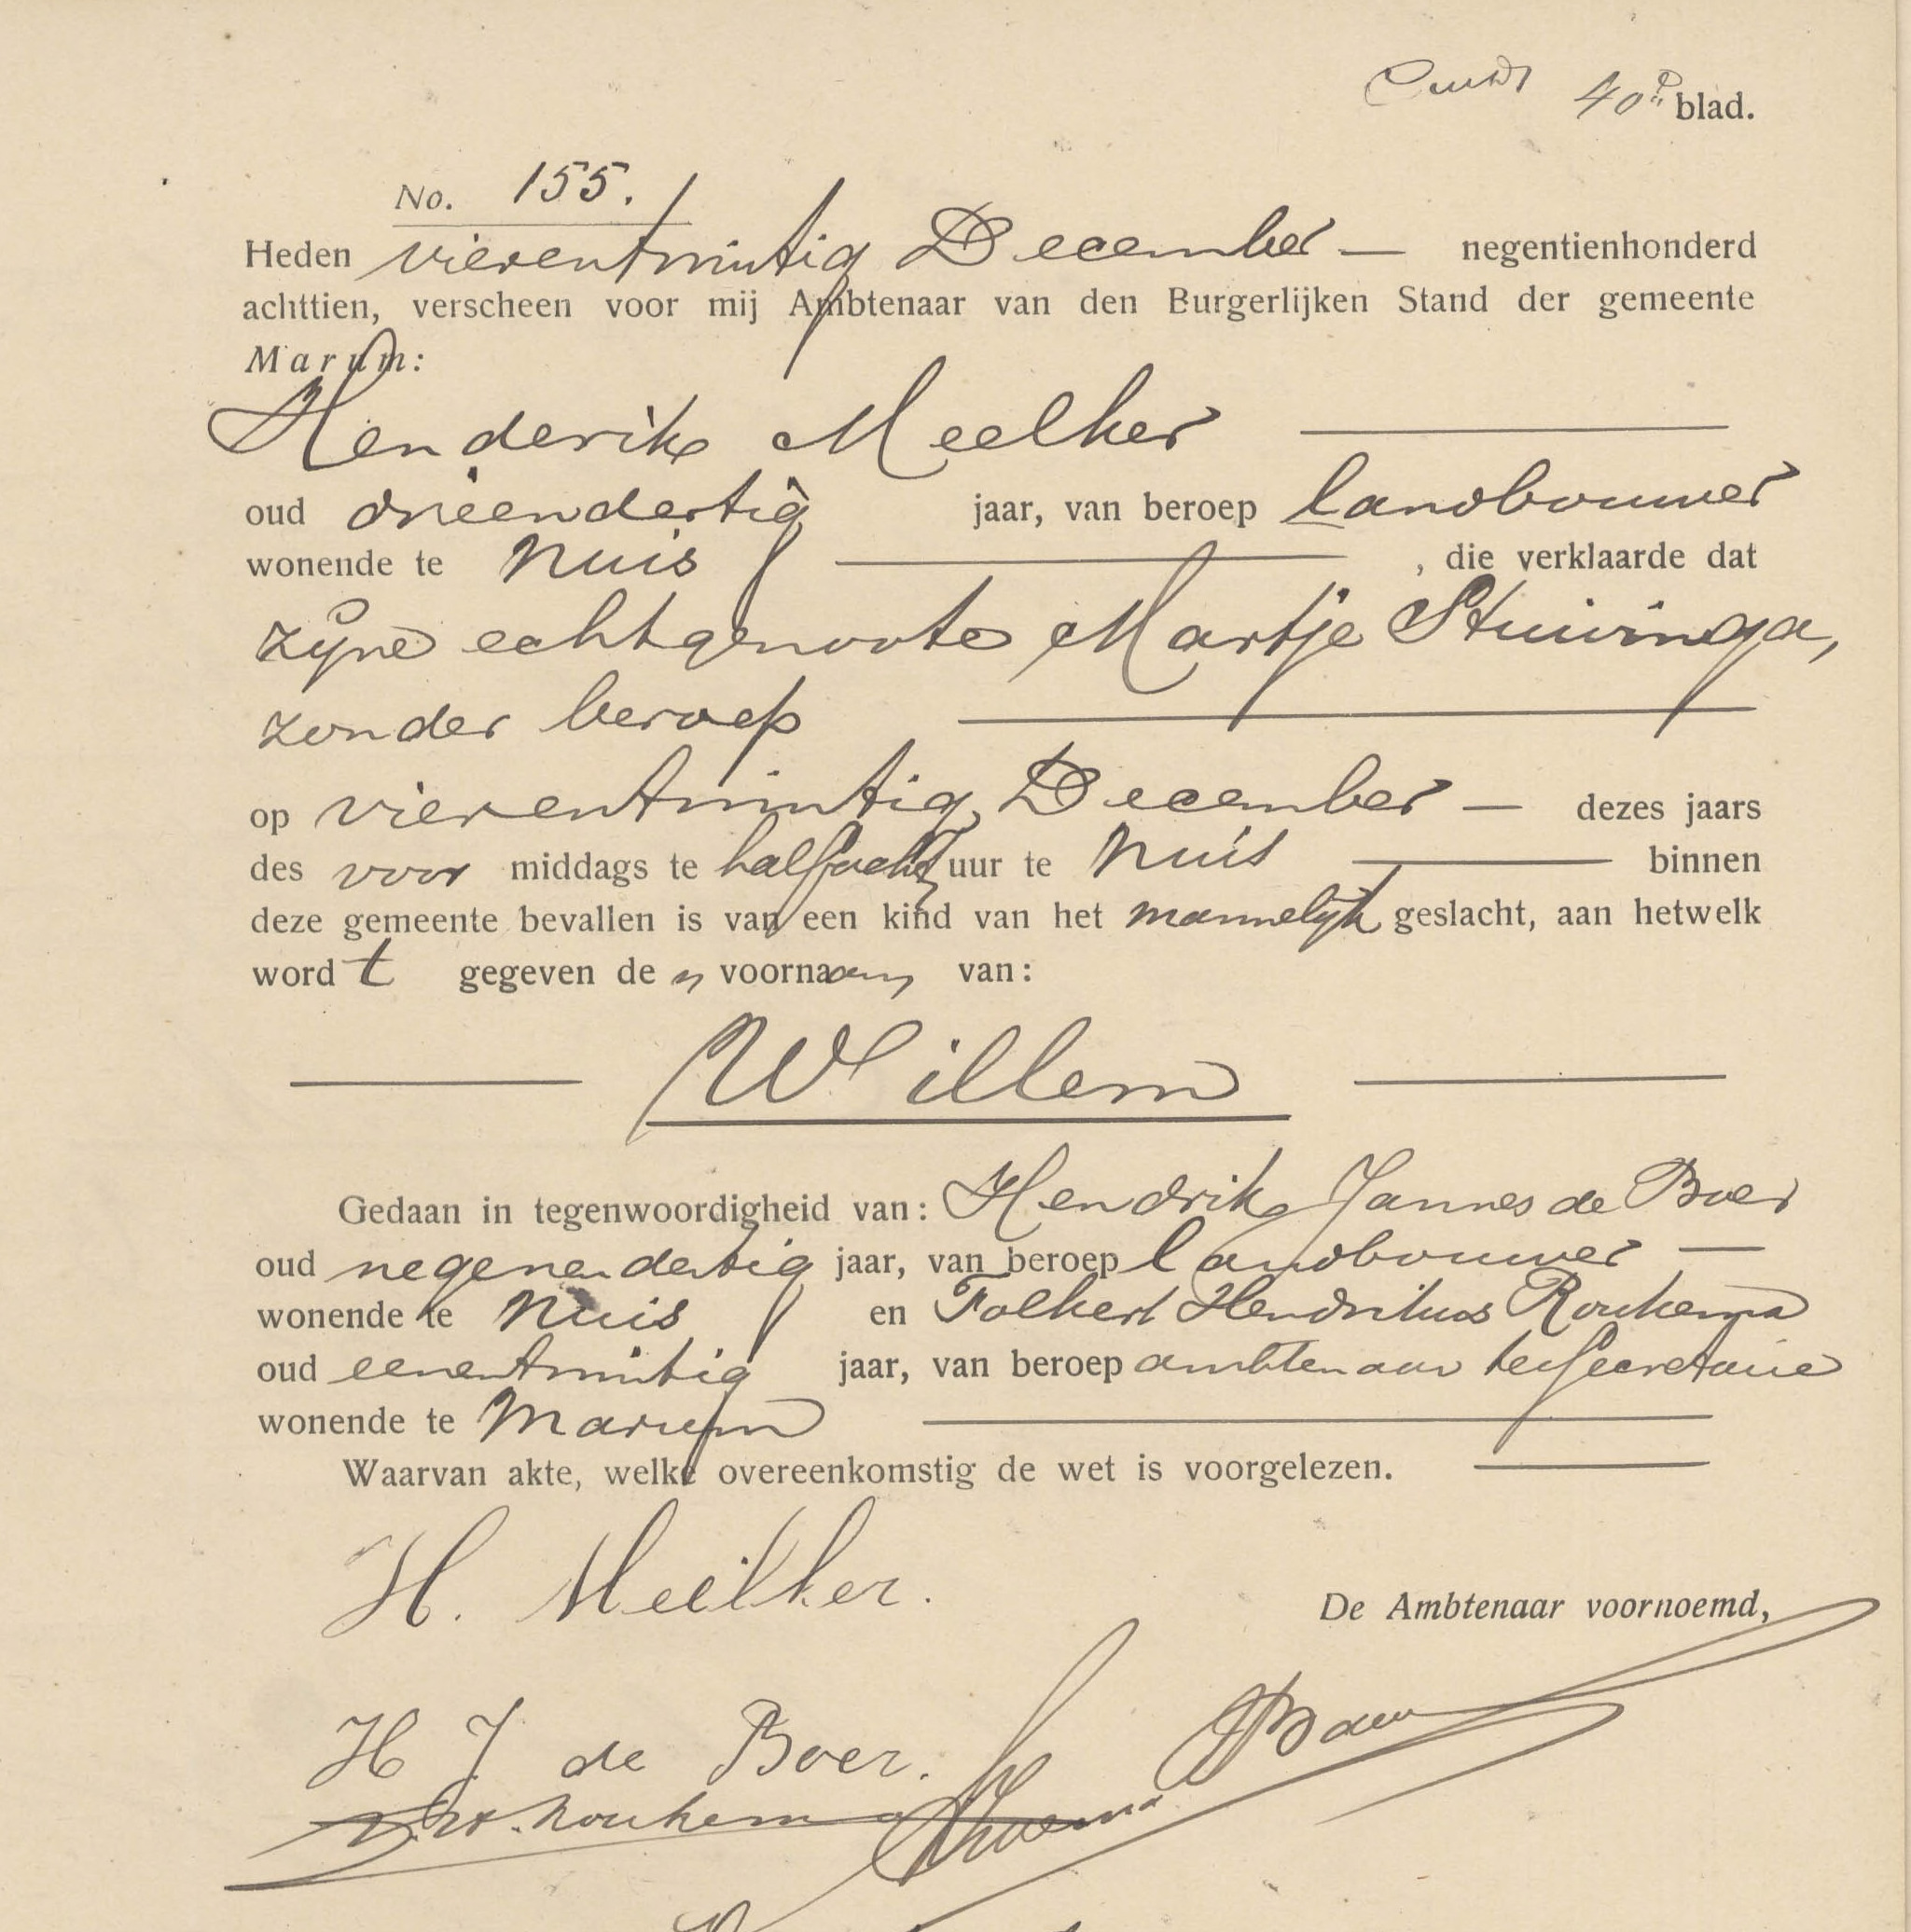 40e blad.
No. 155.
Heden vierentwintig December — negentienhonderd
achttien, verscheen voor mij Ambtenaar van den Burgerlijken Stand der gemeente
Marum:
Henderik Meelker
oud drieendertig jaar, van beroep landbouwer
wonende te Nuis , die verklaarde dat
zijne echtgenoote Martje Stuivinga,
zonder beroep
op vierentwintig December — dezes jaars
des voor middags te half acht uur te Nuis binnen
deze gemeente bevallen is van een kind van het mannelijk geslacht, aan hetwelk
wordt gegeven de n voornaam van:
Willem
Gedaan in tegenwoordigheid van: Hendrik Jannes de Boer
oud negenendertig jaar, van beroep landbouwer —
wonende te Nuis en Folkert Hendrikus Roukema
oud eenentwintig jaar, van beroep ambtenaar ter secretarie
wonende te Marum
Waarvan akte, welke overeenkomstig de wet is voorgelezen.
H. Meelker.
De Ambtenaar voornoemd,
H J de Boer.
Roukema